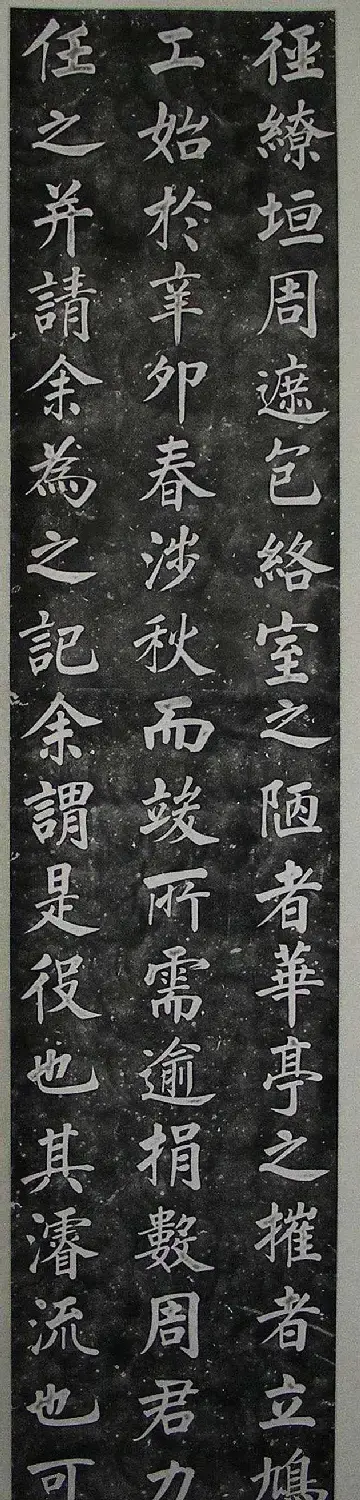 徑繚垣周遮包絡室之陋者華亭之摧者立鳩
工始於辛卯春涉秋而竣所需逾捐數周君力
任之并請余為之記余謂是役也其濬流也可